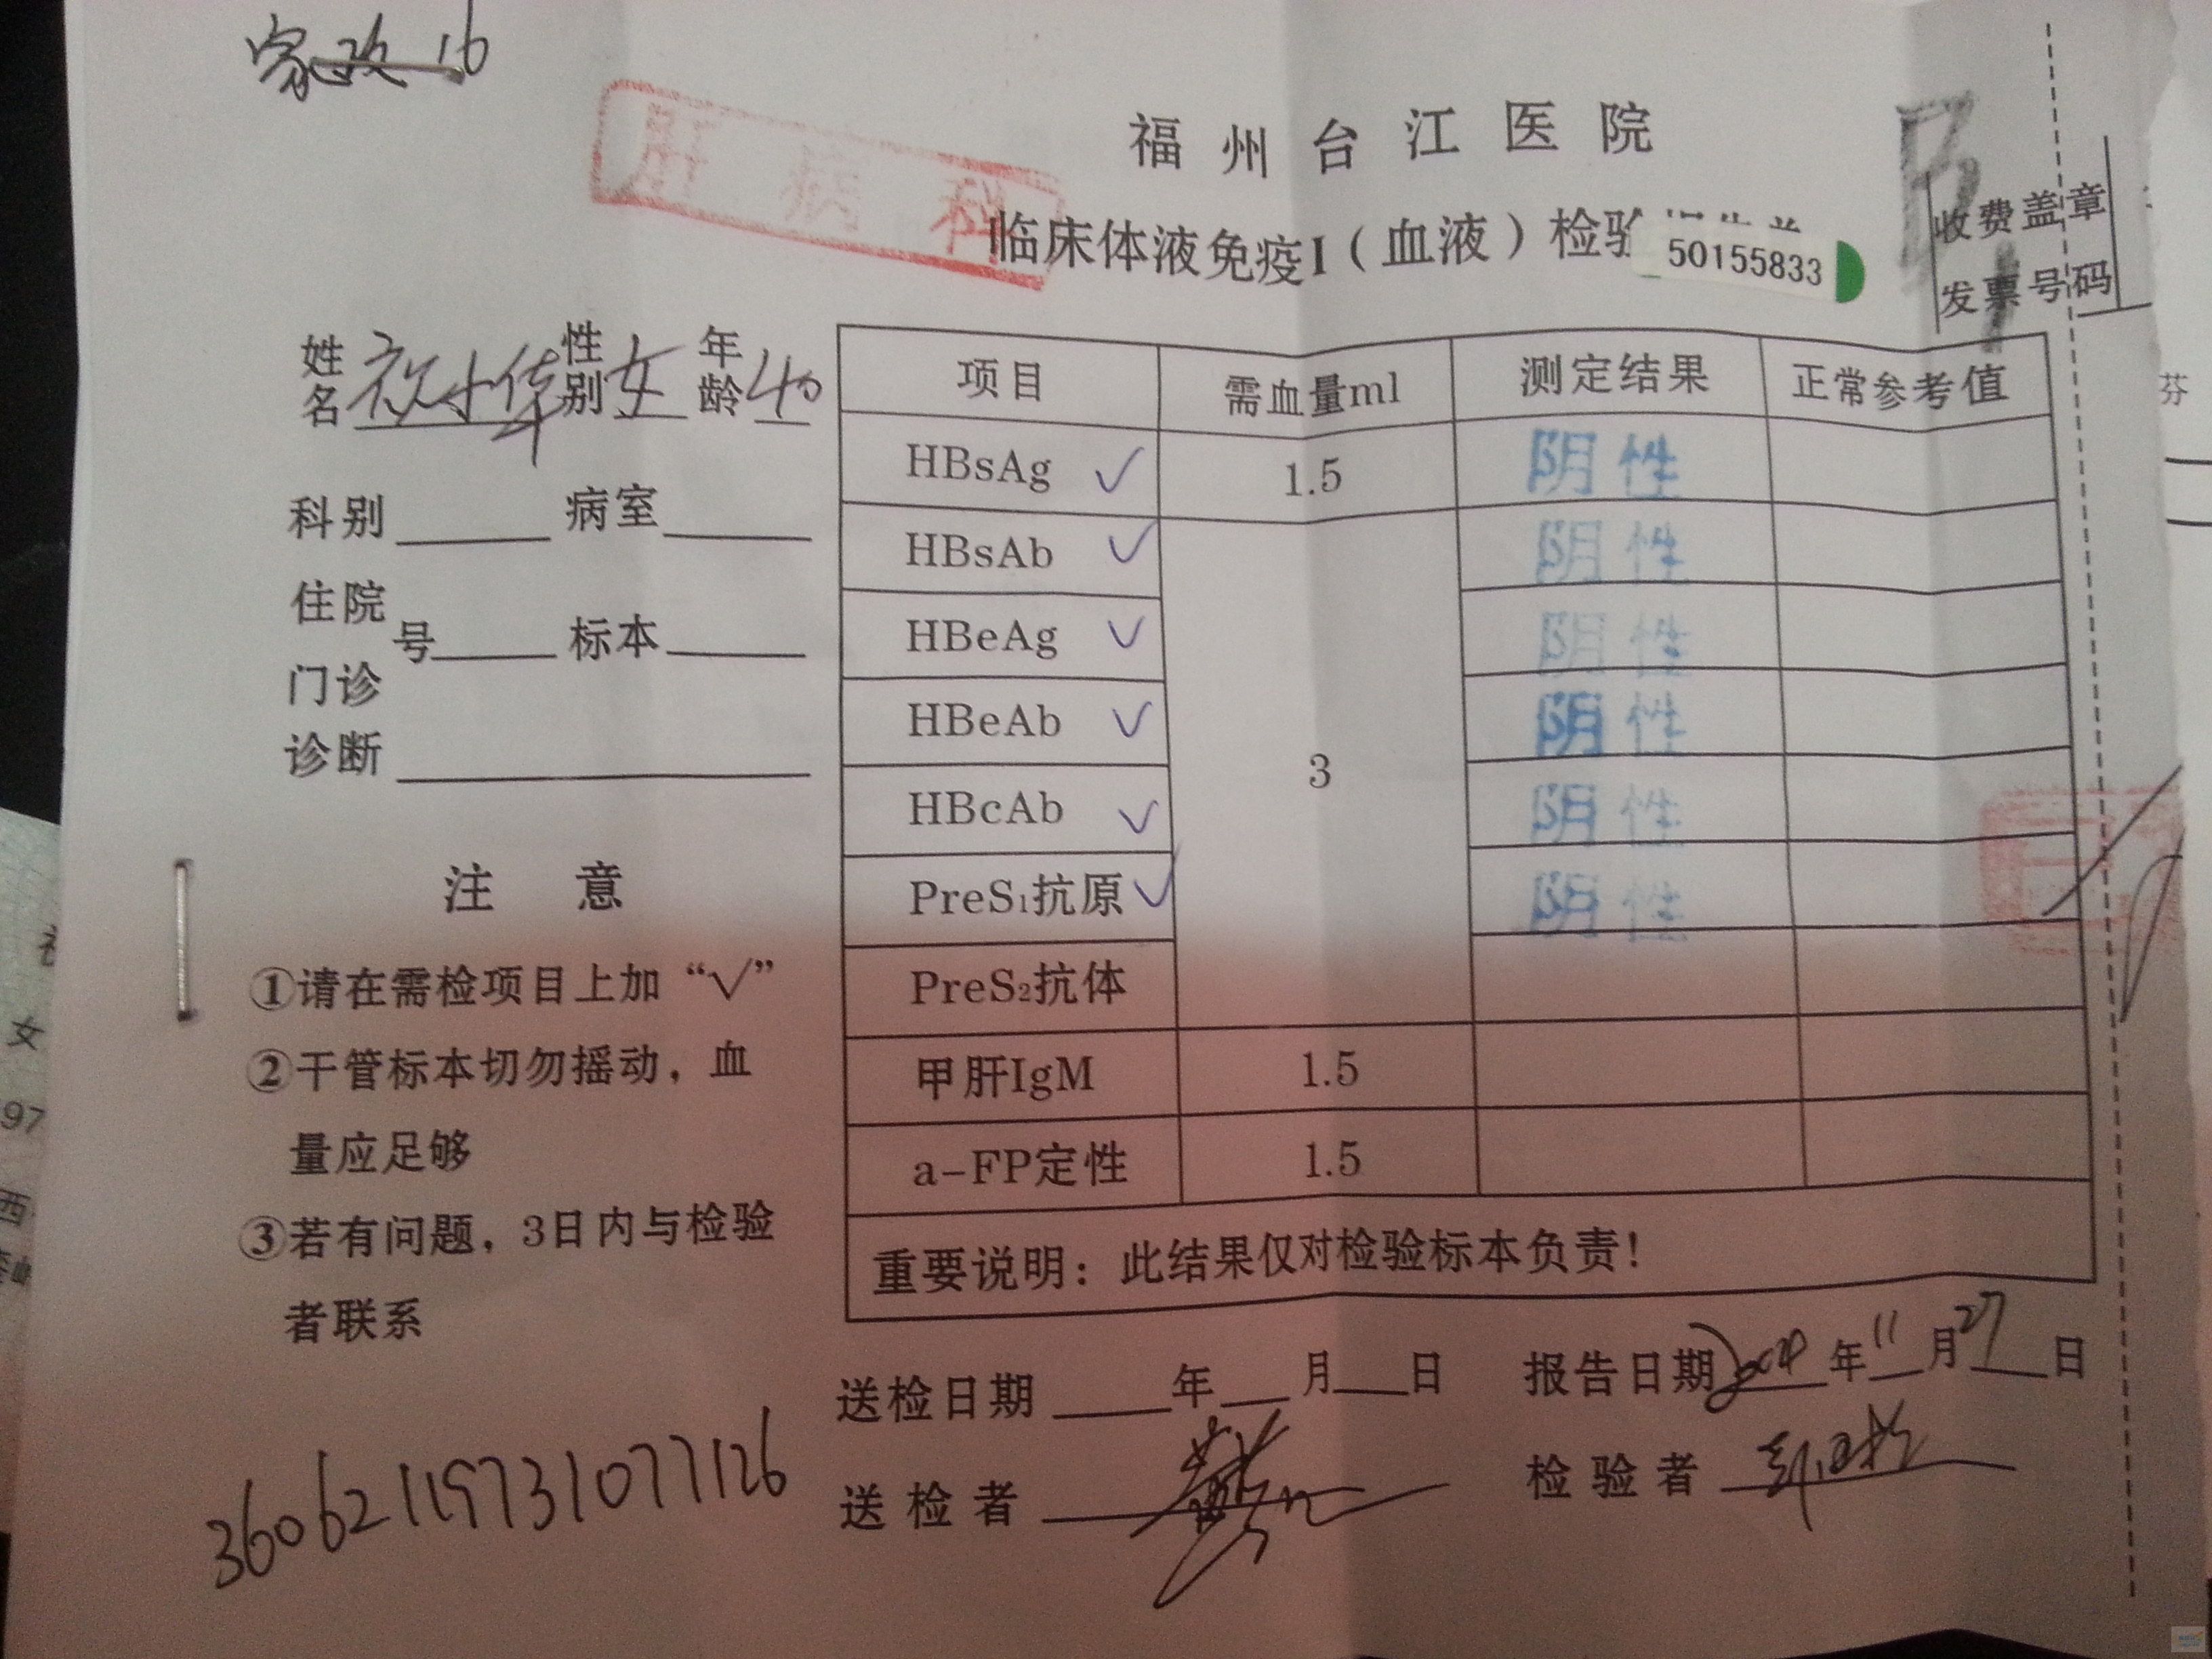 家政 16
肝病科
福州台江医院
临床体液免疫I（血液）检验
50155833
收费盖章
发票号码
芬
姓名 小华 性别 女 年龄 40
科别 病室
住院
门诊 号 标本
诊断
注意
①请在需检项目上加“√”
②干管标本切勿摇动，血
量应足够
③若有问题，3日内与检验
者联系
项目 需血量ml 测定结果 正常参考值
HBsAg √ 1.5 阴性
HBsAb √ 3 阴性
HBeAg √ 阴性
HBeAb √ 阴性
HBcAb √ 阴性
PreS₁抗原 √ 阴性
PreS₂抗体
甲肝IgM 1.5
a-FP定性 1.5
重要说明：此结果仅对检验标本负责！
送检日期 年 月 日 报告日期 年 11 月 27 日
送检者 检验者
36062119731077126
女
97
西